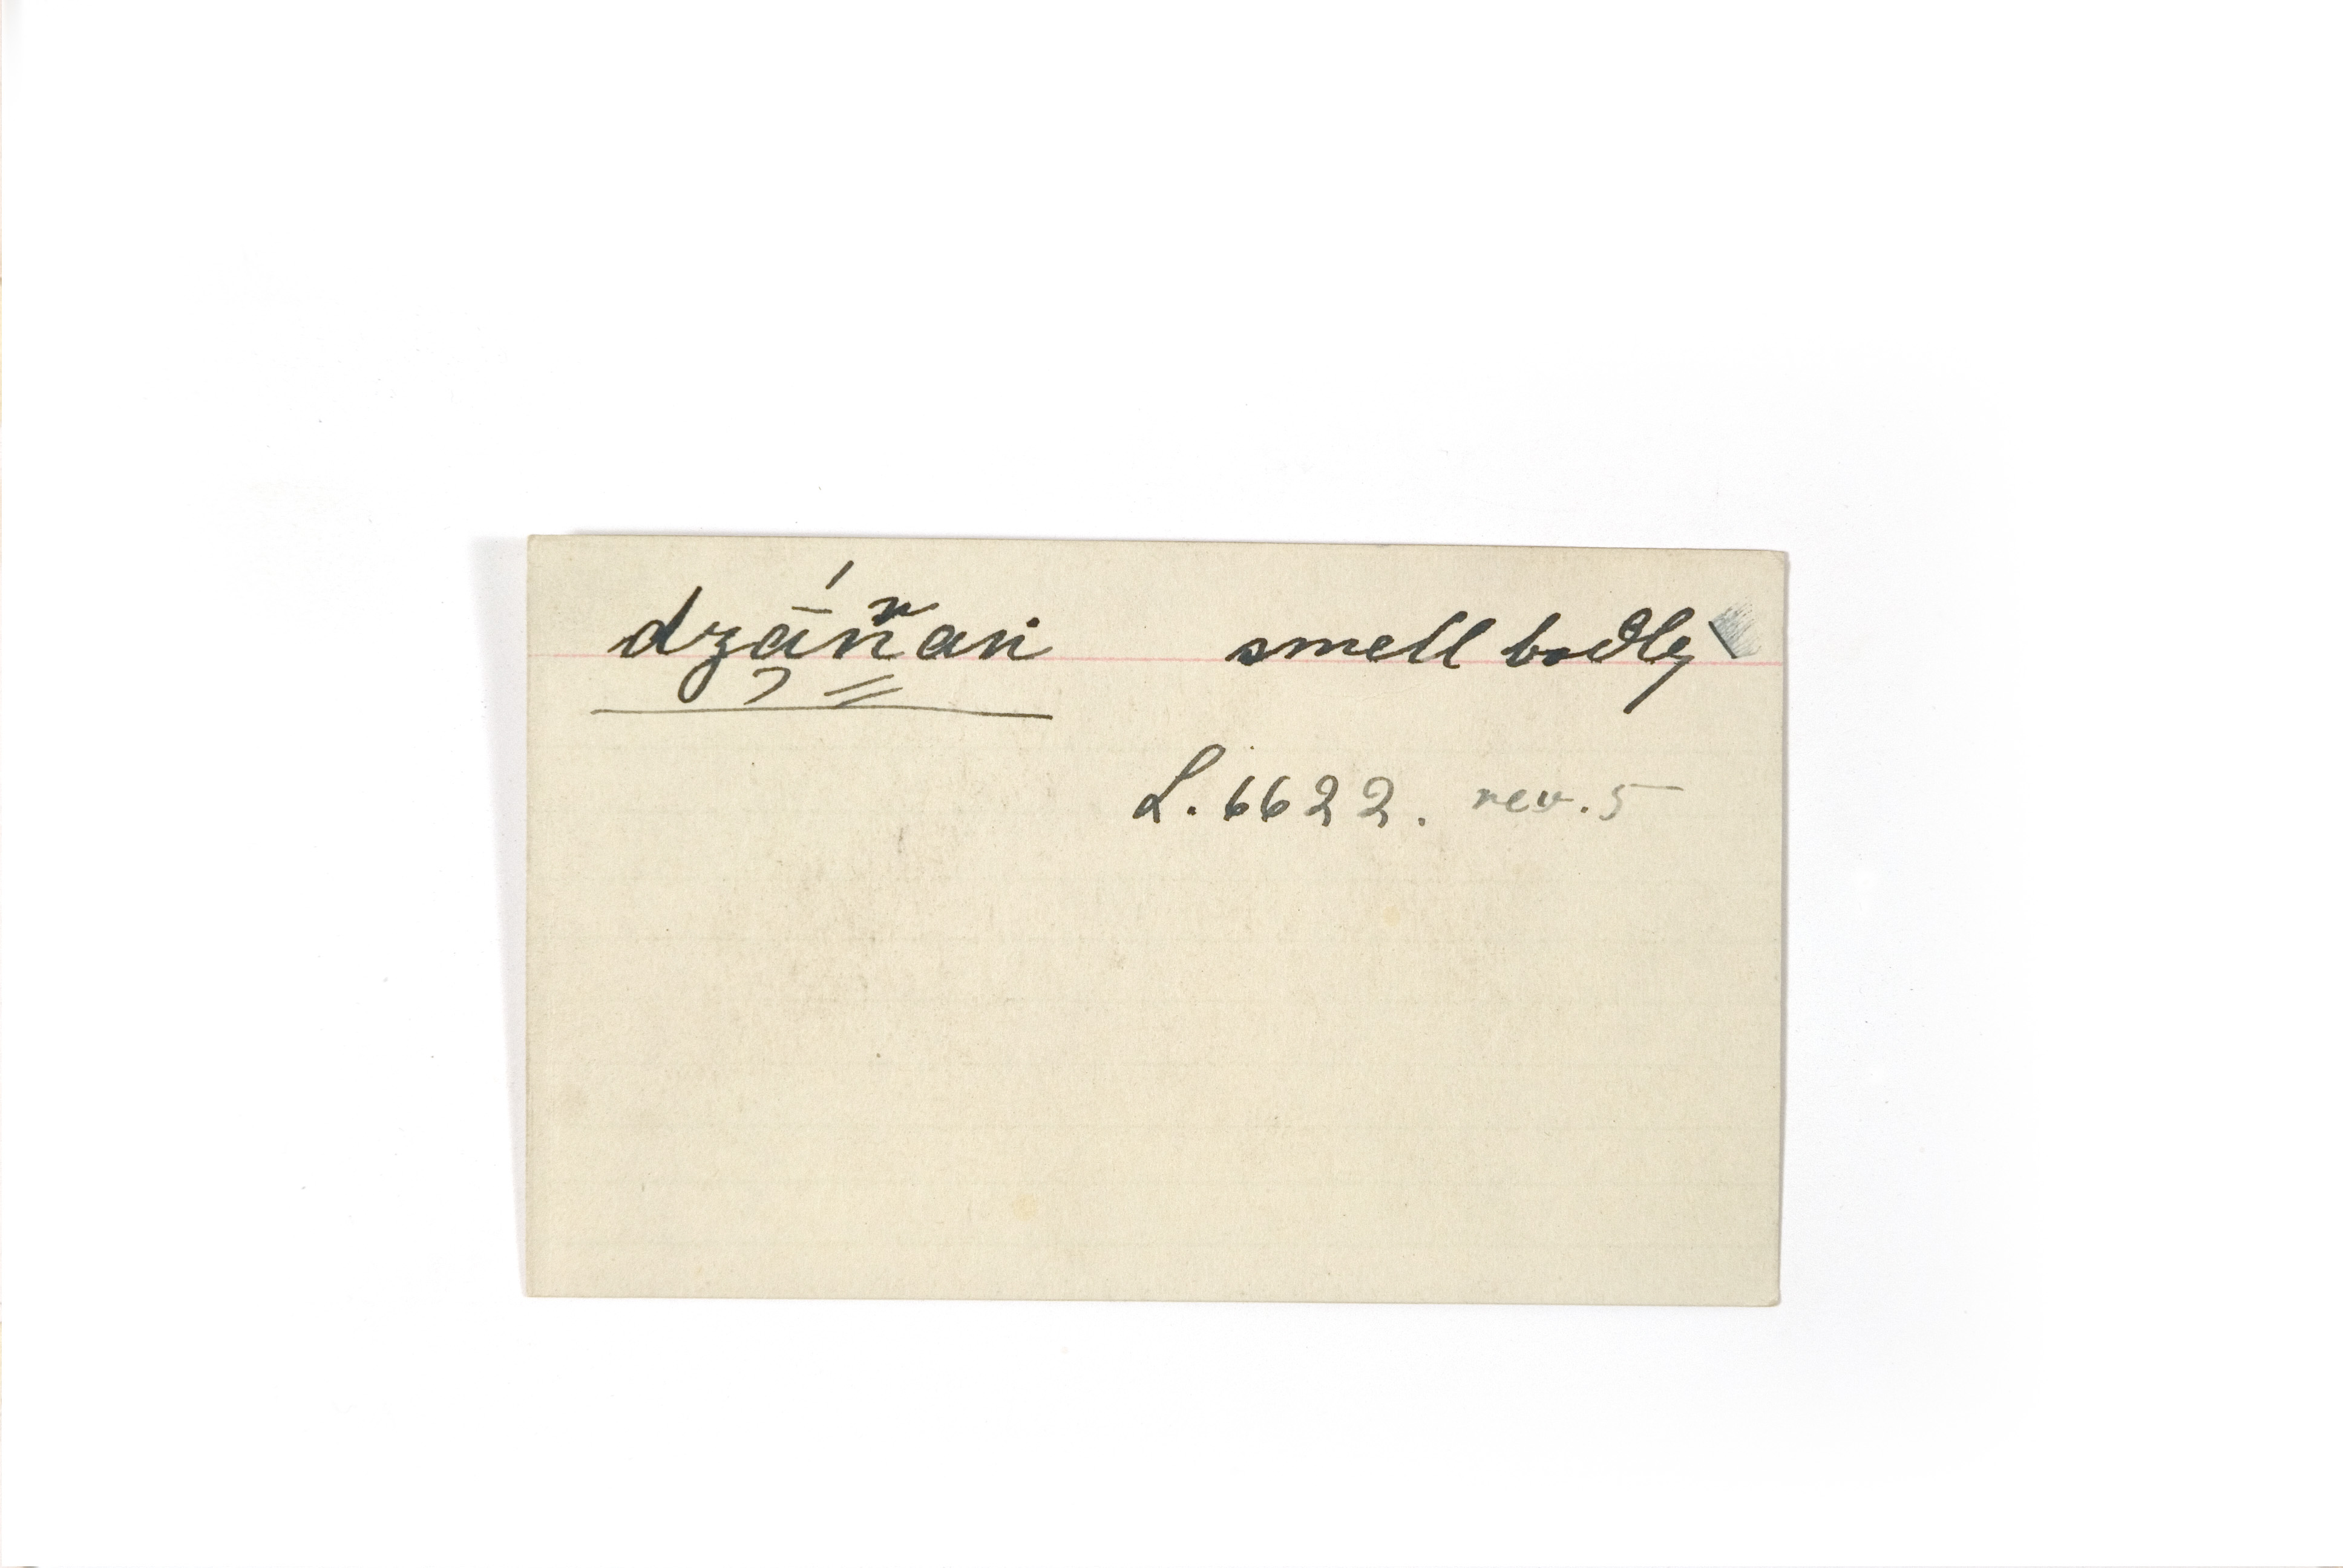 dzā́ñan smell badly
L. 6622. rev. 5